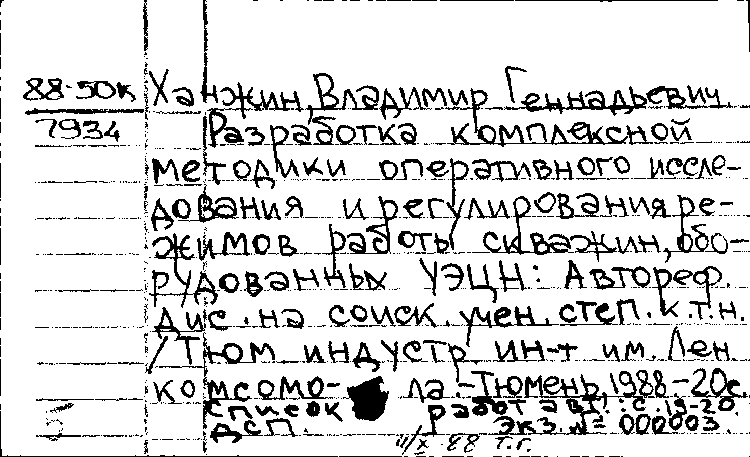 88-50К Ханжин, Владимир Геннадьевич
7934 Разработка комплексной
методики оперативного иссле-
дования и регулирования ре-
жимов работы скважин, обо-
рудованных УЭЦН: Автореф.
дис. на соиск. учен. степ. к.т.н.
/Тюм индустр ин-т им. Лен
комсомо- ла.-Тюмень, 1988-20с.
Список работ авт.: с. 19-20.
5 ДСП. Экз. №= 000003
88 т.г.